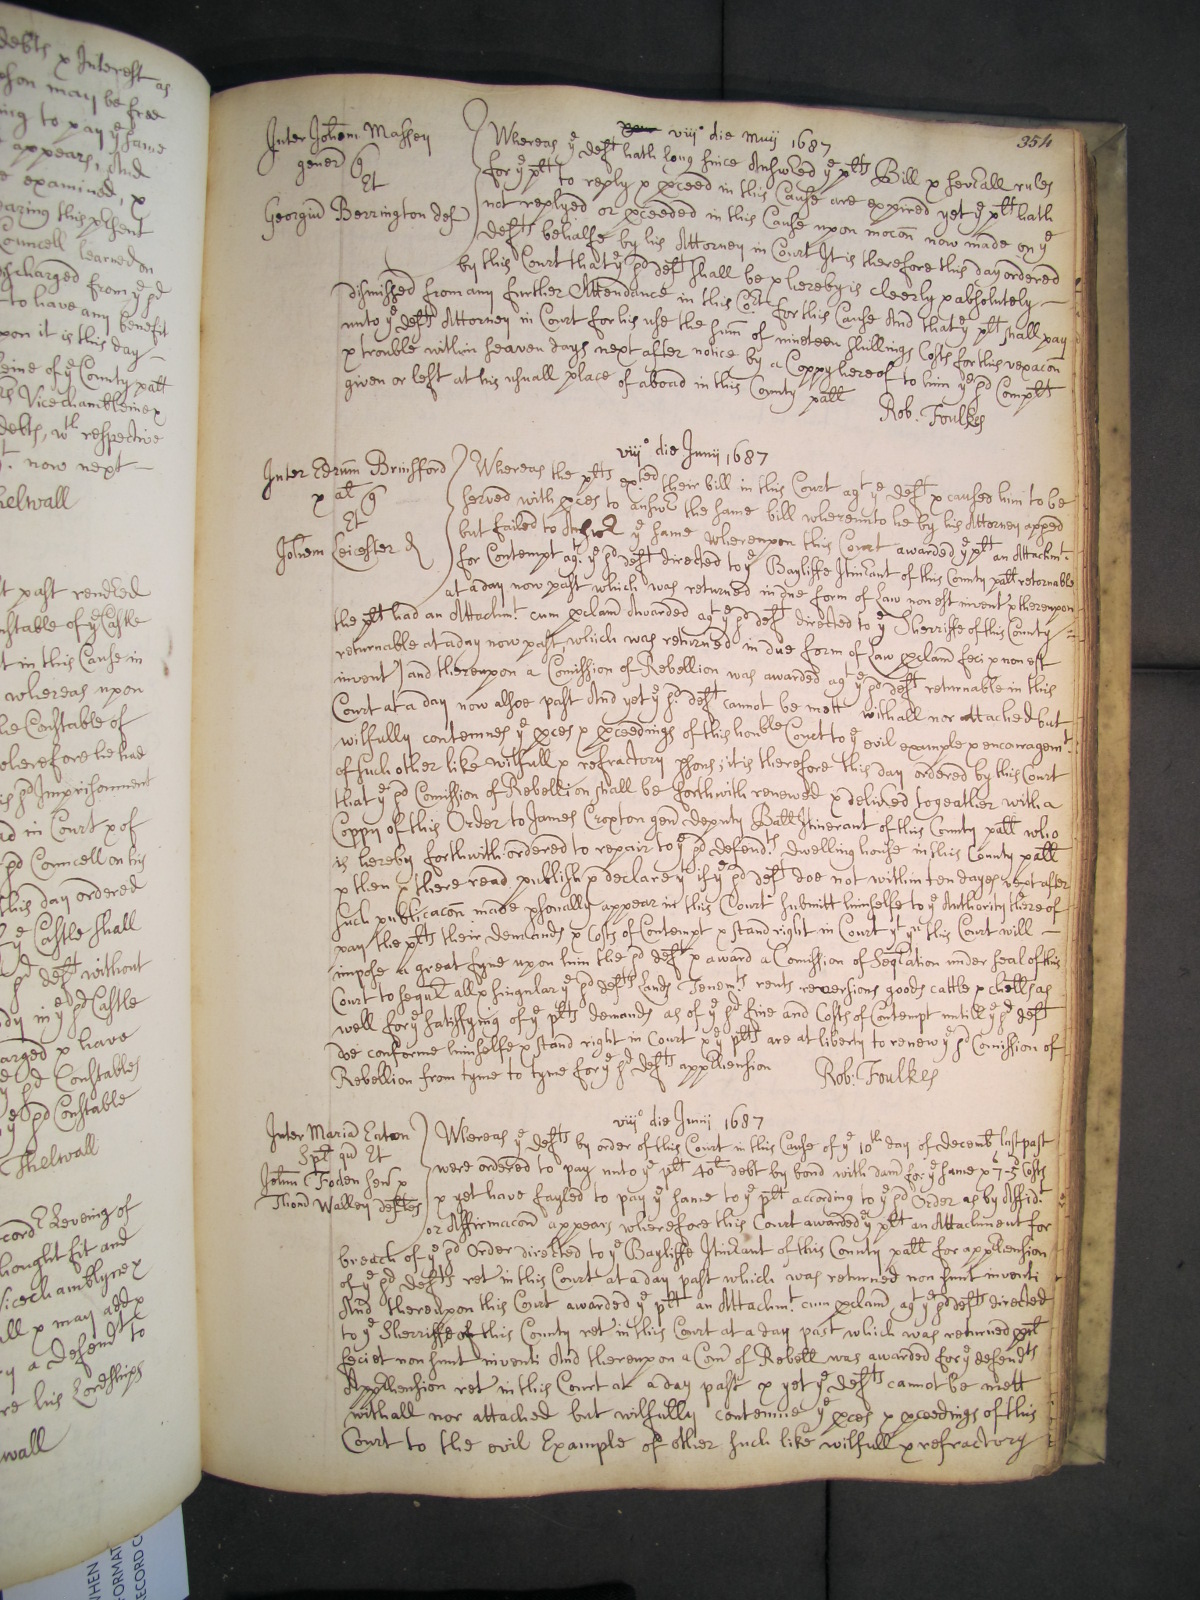 debts & Interest as
pson may be free
ing to pay ye same
appears, And
e examined, &
earing this psent
Councell learned on
scharged from ye sd
to have any benefit
pon it is this day
leine of ye County pall
Vicechamblein &
debts, wth respective
now next —
helwall
t past rendred
nstable of ye Castle
t in this Cause in
whereas upon
he Constable of
wherefore he had
is sd Imprisonment
ad in Court & of
sd Councell on his
this day ordered
ye Castle shall
sd deft without
dy in ye sd Castle
arged & have
sd Constables
ye sd Constable
Thelwall
cord Levening of
hought fit and
Vicechamblyne &
all & may add &
ry a Defendt to
re his Lordships
wall
354
viijo die Maij 1687
Inter Johem Massey
gener Q
Et
Georgiu Berrington def
Whereas ye deft hath long since Answered ye plts Bill & severall rules
for ye plt to reply & pceed in this Cause are expired yet ye plt hath
not replyed or pceeded in this Cause upon mocon now made on ye
defts behalfe by his Attorney in Court It is therefore this day ordered
by this Court that ye sd deft shall be & hereby is cleerly & absolutely —
dismissed from any further Attendance in this Cort for this Cause And that ye plt shall pay
unto ye defts Attorney in Court for his use the sum of nineteen shillings Costs for this vexacon
& trouble within seaven days next after notice by a Coppy hereof to him ye sd Complt
given or left at his usuall place of aboad in this County pall
Rob: Foulkes
viijo die Junij 1687
Inter Edrum Brinsford
& al Q
Et
Johem Leicester d
Whereas the plts exted their bill in this Court agt ye deft & caused him to be
served with pces to answr the same bill whereunto he by his Attorney apped
but failed to Answer ye same Whereupon this Court awarded ye plt an Attachmt
for Contempt agt ye sd deft directed to ye Bayliffe Itinrant of this County pall retornable
at a day now past which was returned in due form of Law non est invent & thereupon
the plt had an Attachmt cum pclam awarded agt ye sd deft directed to ye Sherriffe of this County
returnable at a day now past, which was returned in due form of Law pclam feci & non est
invent] and thereupon a Comission of Rebellion was awarded agt ye sd deft returnable in this
Court at a day now alsoe past And yet ye sd deft cannot be mett withall nor attached but
wilfully contemnes ye pces & pceedings of this honble Court to ye evil example & encouragemt
of such other like wilfull & refractory psons; it is therefore this day ordered by this Court
that ye sd Comission of Rebellion shall be forthwith renewed & delived togeather with a
Coppy of this Order to James Croxton gen deputy Ball Itinerant of this County pall who
is hereby forthwith ordered to repair to ye sd defendts dwelling house in this County pall
& then & there read publish & declare yt if ye sd deft doe not within ten dayes next after
such publicacon made psonally appear in this Court submitt himselfe to ye Authority thereof
pay the plts their demands & Costs of Contempt & stand right in Court yt yn this Court will —
impose a great fyne upon him the sd deft & award a Comission of Seqtation under seal of this
Court to sequr all & singular ye sd defts Lands Tenemts rents reversions goods cattle & chells as
well for ye satisfying of ye plts demands as of ye sd fine and Costs of Contempt untill ye sd deft
doe conforme himselfe & stand right in Court & ye plts are at liberty to renew ye sd Comission of
Rebellion from tyme to tyme for ye sd defts apphension
Rob: Foulkes
viijo die Junij 1687
Inter Maria Eaton
Spr qu Et
Johm Foden sen &
Thom Walley deftes
Whereas ye defts by order of this Court in this Cause of ye 10th day of decembr last past
were ordered to pay unto ye plt 40l debt by bond with dam for ye same & 7-5 Costs
& yet have fayled to pay ye same to ye plt according to ye sd Order as by Affidt
or Affirmacon appears wherefore this Court awarded ye plt an Attachment for
breach of ye sd Order directed to ye Bayliffe Itinrant of this County pall for apphension
of ye sd defts ret in this Court at a day past which was returned non sunt inventi
And thereupon this Court awarded ye plt an Attachmt cum pclam agt ye sd defts directed
to ye Sherriffe of this County ret in this Court at a day past which was returned pcl
feci et non sunt inventi And thereupon a Com of Rebell was awarded for ye defendts
Apphension ret in this Court at a day past & yet ye defts cannot be mett
withall nor attached but wilfully contemne ye pces & pceedings of this
Court to the evil Example of other such like wilfull & refractory
WHEN
FORMAT
RECORD C